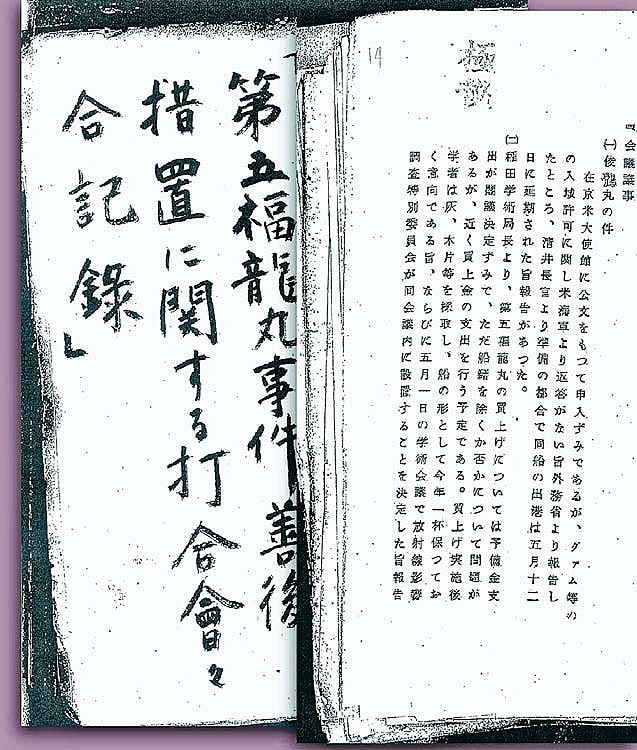 「第五福龍丸事件善後
措置に関する打合會々
合記録」
14
極秘
『会議議事
㈠俊鶻丸の件
在京米大使館に公文をもつて申入ずみであるが、グァム等
の入域許可に関し米海軍より返答がない旨外務省より報告し
たところ、清井長官より準備の都合で同船の出港は五月十二
日に延期された旨報告があつた。
㈡稲田学術局長より、第五福龍丸の買上げについては予備金支
出が閣議決定ずみで、ただ船を除くか否かについて問題が
あるが、近く買上金の支出を行う予定である。買上げ実施後
学者は灰、木片等を採取し、船の形として今年一杯保つてお
く意向である旨、ならびに五月一日の学術会議で放射線影響
調査特別委員会が同会議内に設置することを決定した旨報告